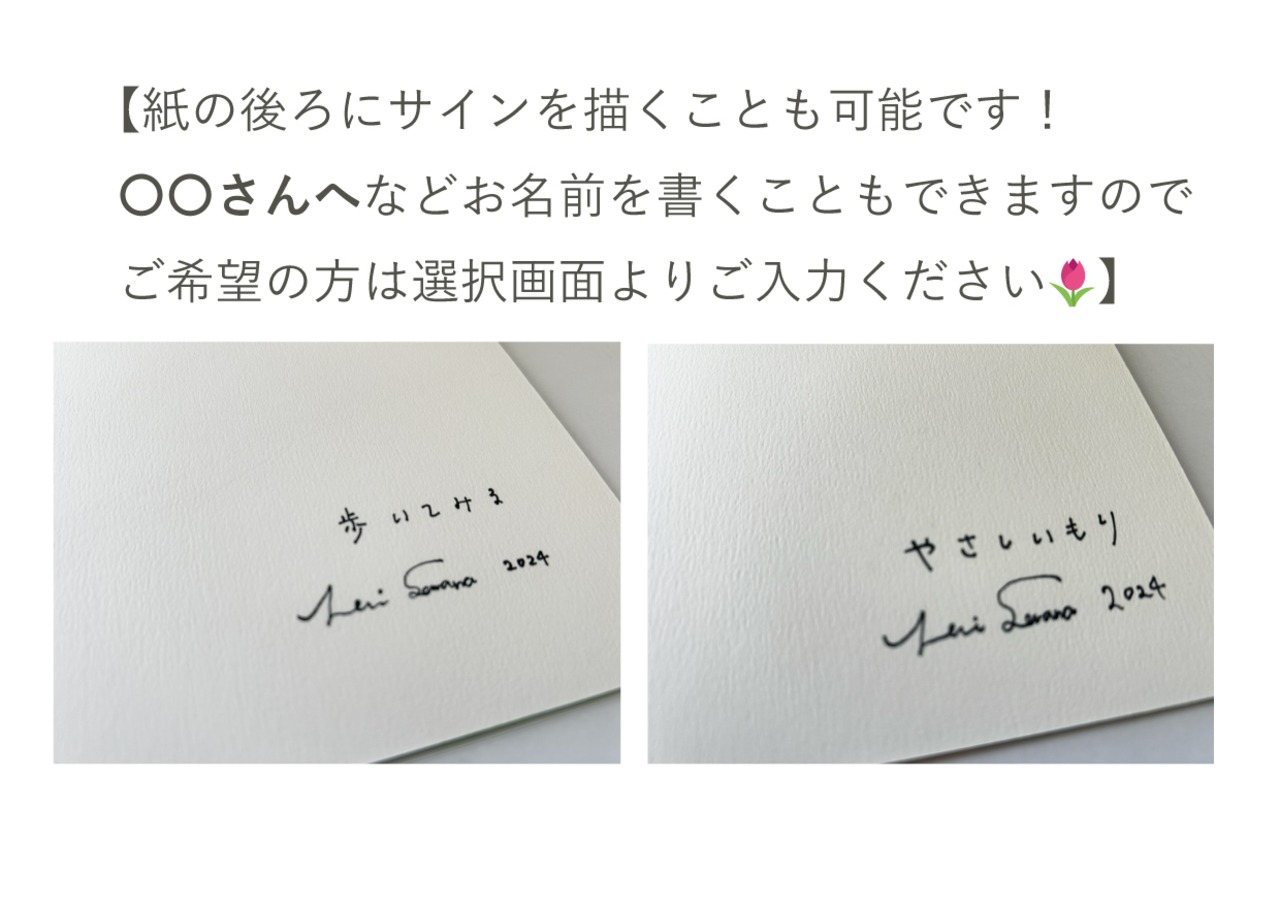 【紙の後ろにサインを描くことも可能です！
〇〇さんへなどお名前を書くこともできますので
ご希望の方は選択画面よりご入力ください🌷】
歩いてみる
2024
やさしいもり
2024